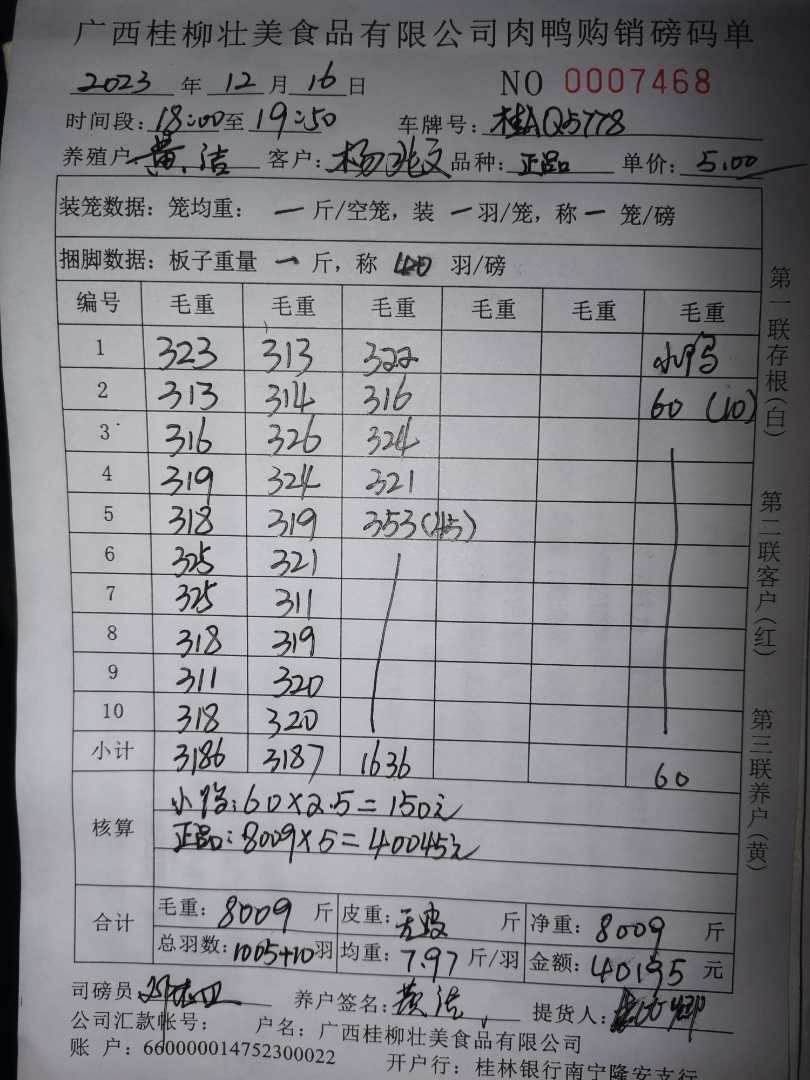 广西桂柳壮美食品有限公司肉鸭购销磅码单
2023 年 12 月 16 日 NO 0007468
时间段: 18:00 至 19:50 车牌号: 桂AQ5778
养殖户 黄洁 客户: 杨兆文 品种: 正品 单价: 5.00
装笼数据: 笼均重: 一 斤/空笼, 装 一 羽/笼, 称 一 笼/磅
捆脚数据: 板子重量 一 斤, 称 40 羽/磅
编号 毛重 毛重 毛重 毛重 毛重 毛重
1 323 313 322 小鸭
2 313 314 316 60 (10)
3 316 326 324
4 319 324 321
5 318 319 353(45)
6 325 321
7 325 311
8 318 319
9 311 320
10 318 320
小计 3186 3187 1636 60
核算 小鸭: 60×2.5=150元
正品: 8009×5=40045元
合计 毛重: 8009 斤 皮重: 无皮 斤 净重: 8009 斤
总羽数: 1005+10 羽 均重: 7.97 斤/羽 金额: 40195 元
司磅员 养户签名: 黄洁 提货人:
公司汇款帐号: 户名: 广西桂柳壮美食品有限公司
账 户: 660000014752300022 开户行: 桂林银行南宁隆安支行
第一联存根(白)
第二联客户(红)
第三联养户(黄)